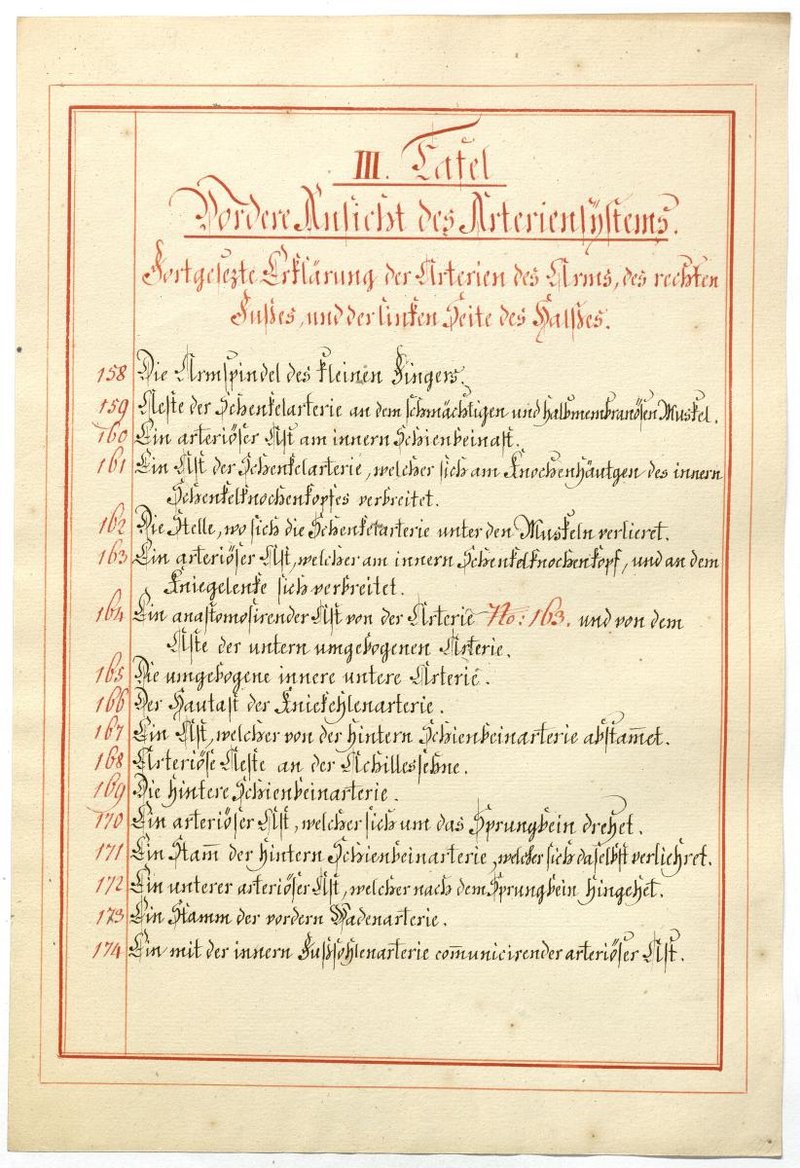 III. Tafel
Vordere Ansicht des Arteriensÿstems.
Fortgesezte Erklärung der Arterien des Arms, des rechten
Fußes, und der linken Seite des Halßes.
158 Die Armspindel des kleinen Fingers.
159 Aeste der Schenkelarterie an dem schmächtigen und halbmembranösen Muskel.
160 Ein arteriöser Ast am innern Schienbeinast.
161 Ein Ast der Schenkelarterie, welcher sich am Knochenhäutgen des innern
Schenkelknochenkopfes verbreitet.
162 Die Stelle, wo sich die Schenkelarterie unter den Muskeln verlieret.
163 Ein arteriöser Ast, welcher am innern Schenkelknochenkopf, und an dem
Kniegelenke sich verbreitet.
164 Ein anastomosirender Ast von der Arterie No: 163. und von dem
Aste der untern umgebogenen Arterie.
165 Die umgebogene innere untere Arterie.
166 Der Hautast der Kniekehlenarterie.
167 Ein Ast, welcher von der hintern Schienbeinarterie abstam̅et.
168 Arteriöse Aeste an der Achillessehne.
169 Die hintere Schienbeinarterie.
170 Ein arteriöser Ast, welcher sich um das Sprungbein drehet.
171 Ein Stam̅ der hintern Schienbeinarterie, welcher sich daselbst verliehret.
172 Ein unterer arteriöser Ast, welcher nach dem Sprungbein hingehet.
173 Ein Stamm der vordern Wadenarterie.
174 Ein mit der innern Fußsohlenarterie com̅unicirender arteriöser Ast.